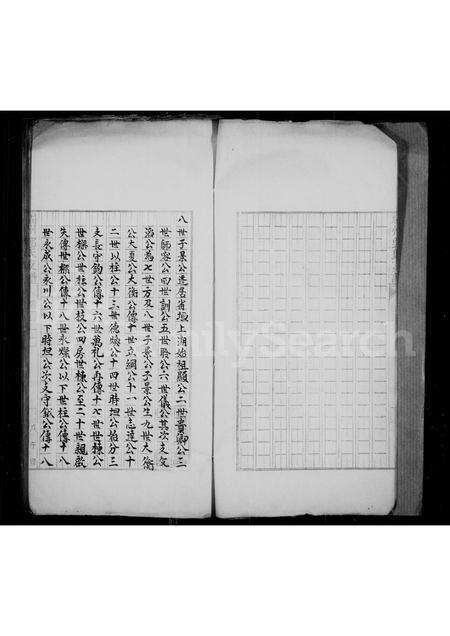 八世子景公遷居省垣上湖始祖顯公二世貴卿公三
世師容公四世訓公五世聆公六世儀公其次支文
海公為七世方及八世子景公子景公生九世大衡
公大夏公大衡公傳十世立綱公十一世志達公十
二世以柱公十三世德燦公十四世時担公始分三
支長守鈞公傳十六世萬礼公再傳十七世世棟公
世機公世柱公世枝公四房世棟公至二十世親啟
失傳世機公傳十八世永燦公以下世柱公傳十八
世永成公永川公以下時担公次支守鉞公傳十八
FamilySearch